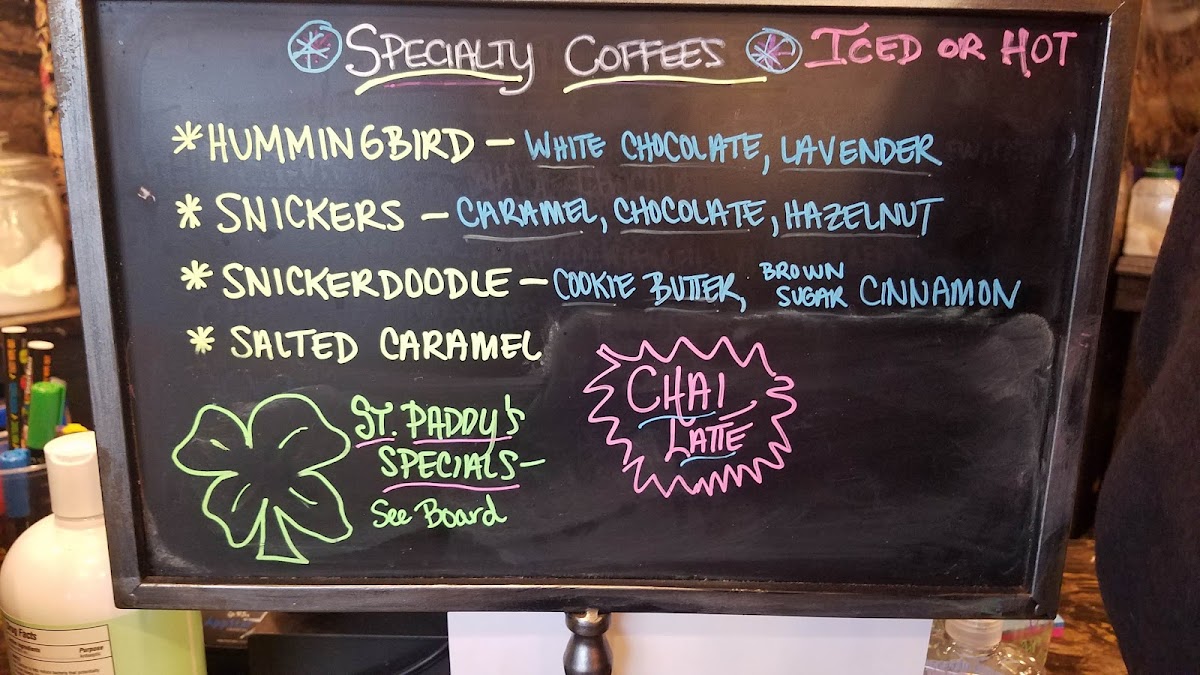 * SPECIALTY COFFEES * ICED OR HOT
* HUMMINGBIRD - WHITE CHOCOLATE, LAVENDER
* SNICKERS - CARAMEL, CHOCOLATE, HAZELNUT
* SNICKERDOODLE - COOKIE BUTTER, BROWN SUGAR CINNAMON
* SALTED CARAMEL
ST. PADDY'S
SPECIALS-
See Board
CHAI
LATTE
Drug Facts
Purpose